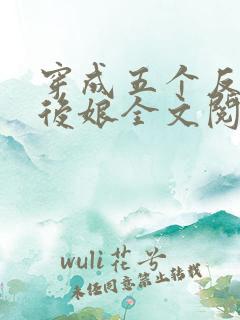 穿成五个反
后娘全文阅
wuli花兮
未经同意禁止转载